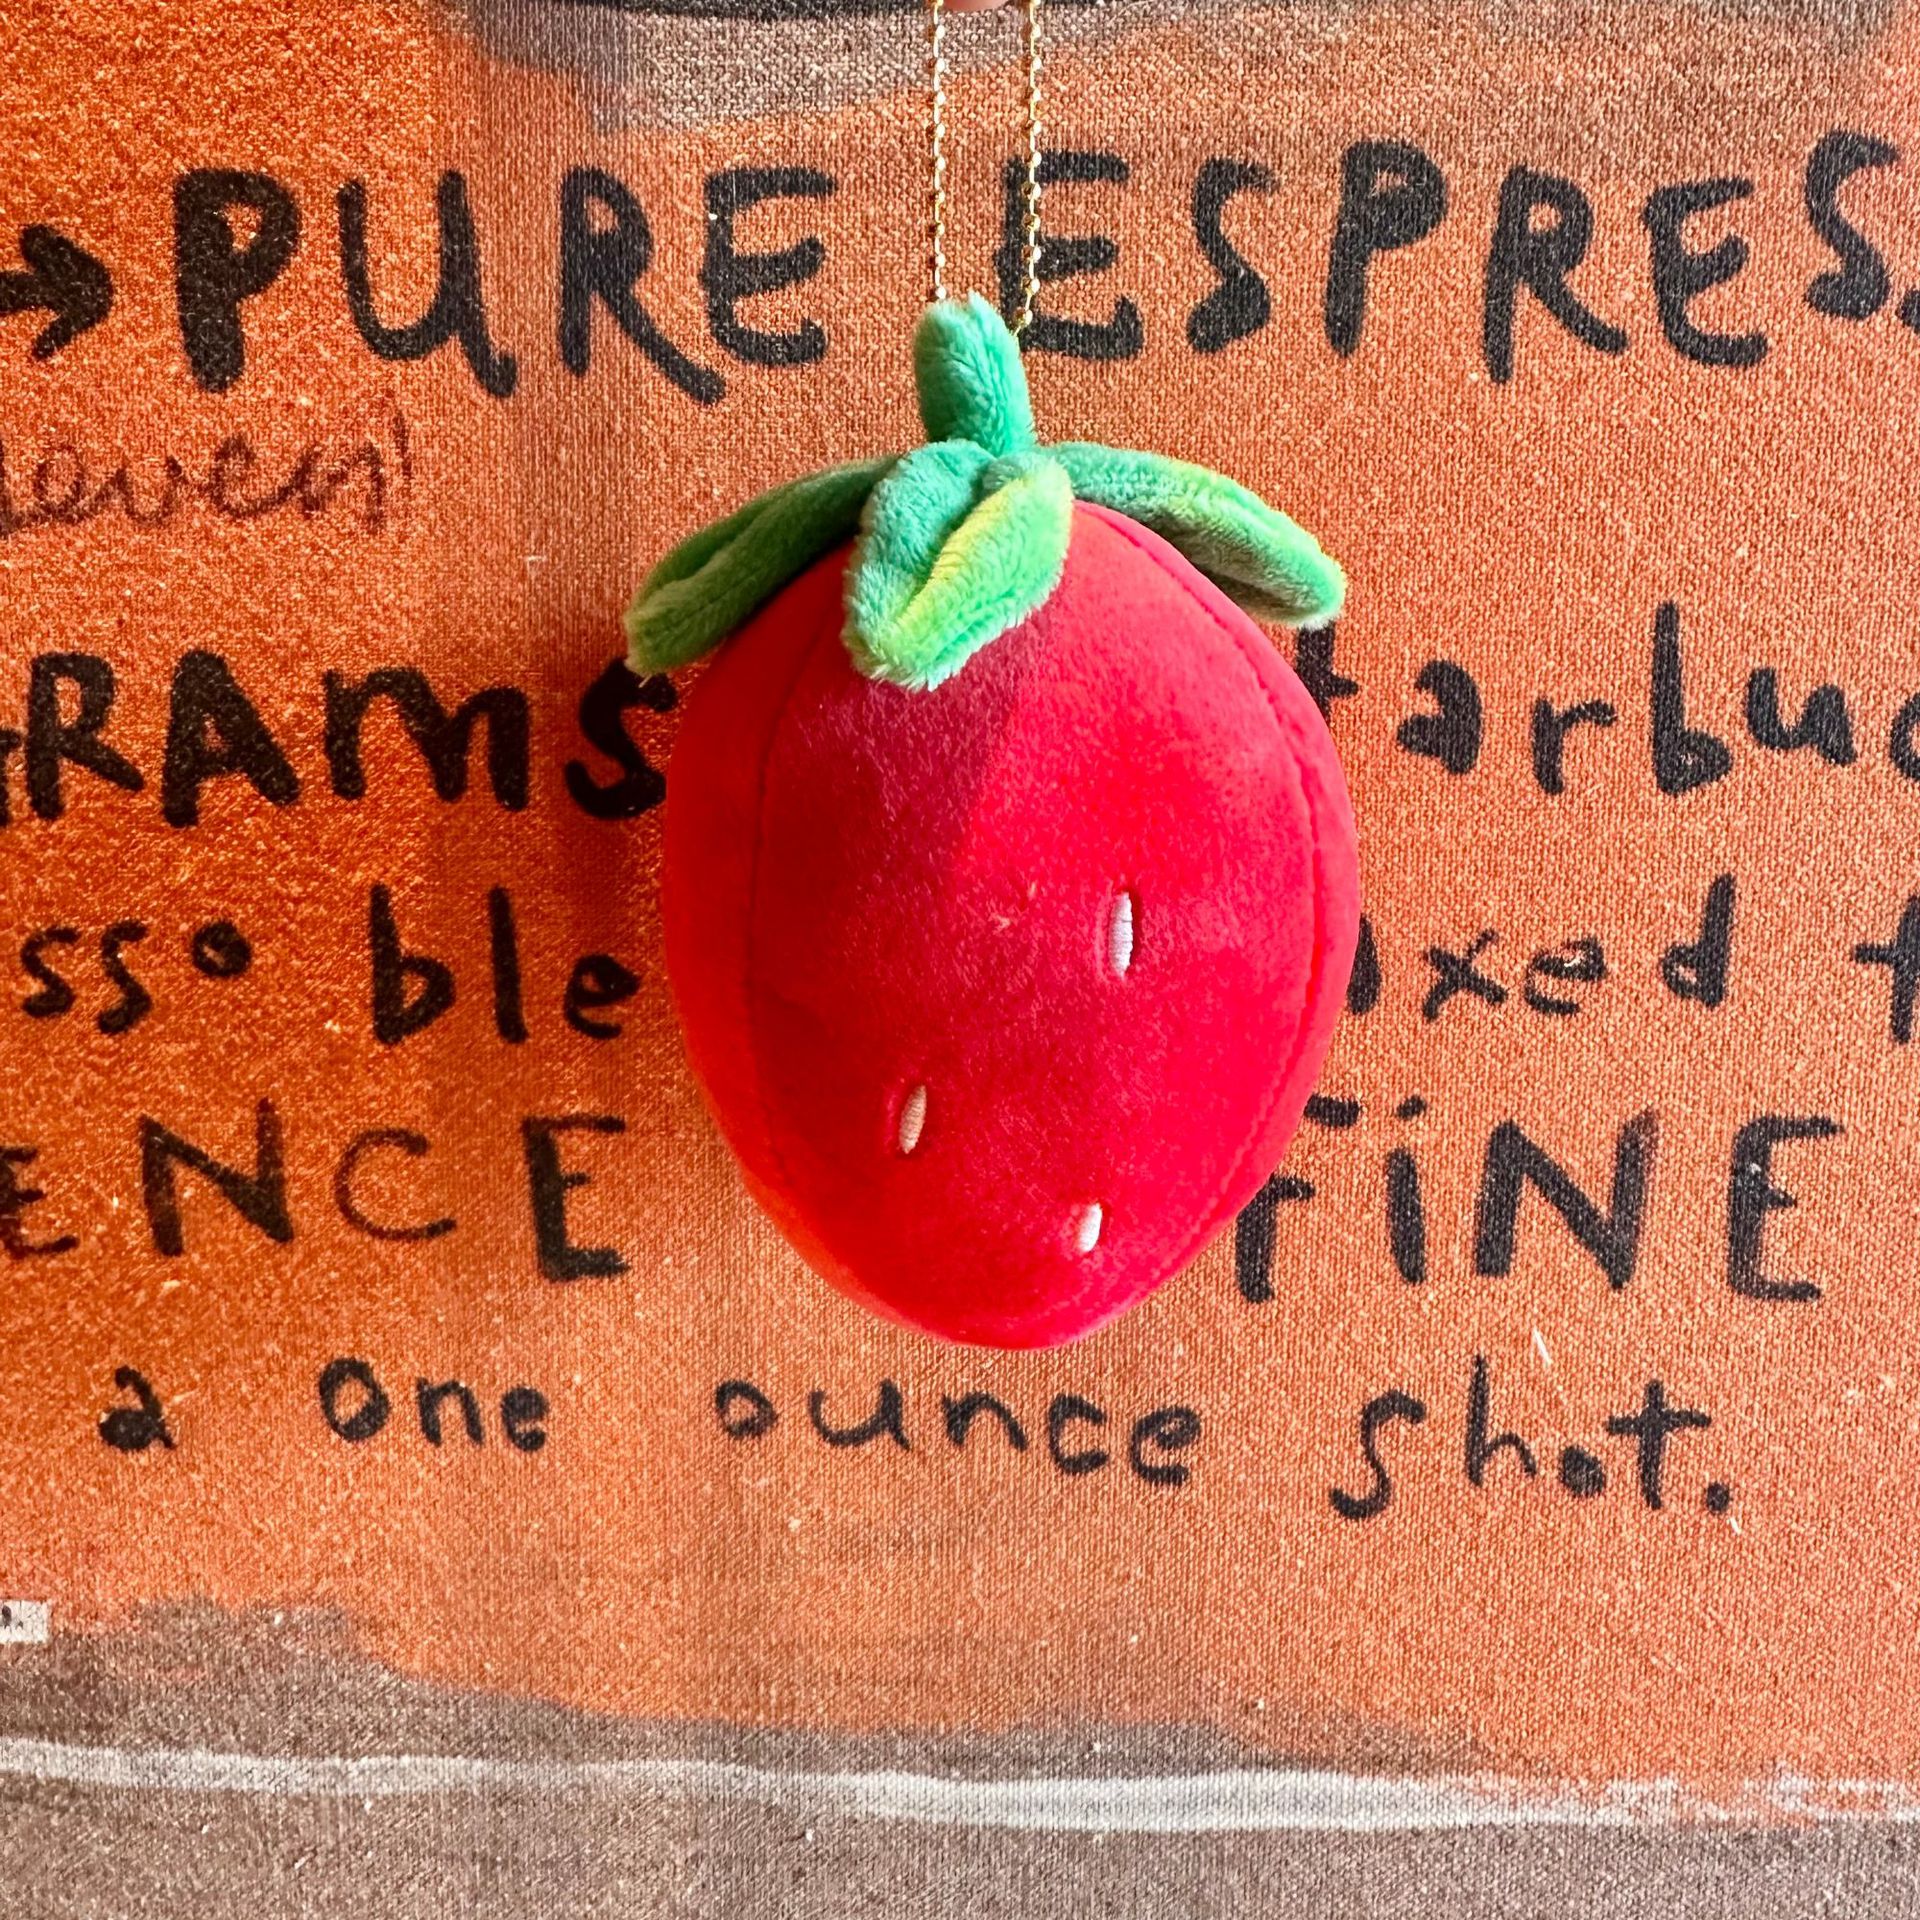 → PURE ESPRES
GRAMS tarbuc
sso ble ixed t
ENCE FiNE
a one ounce shot.